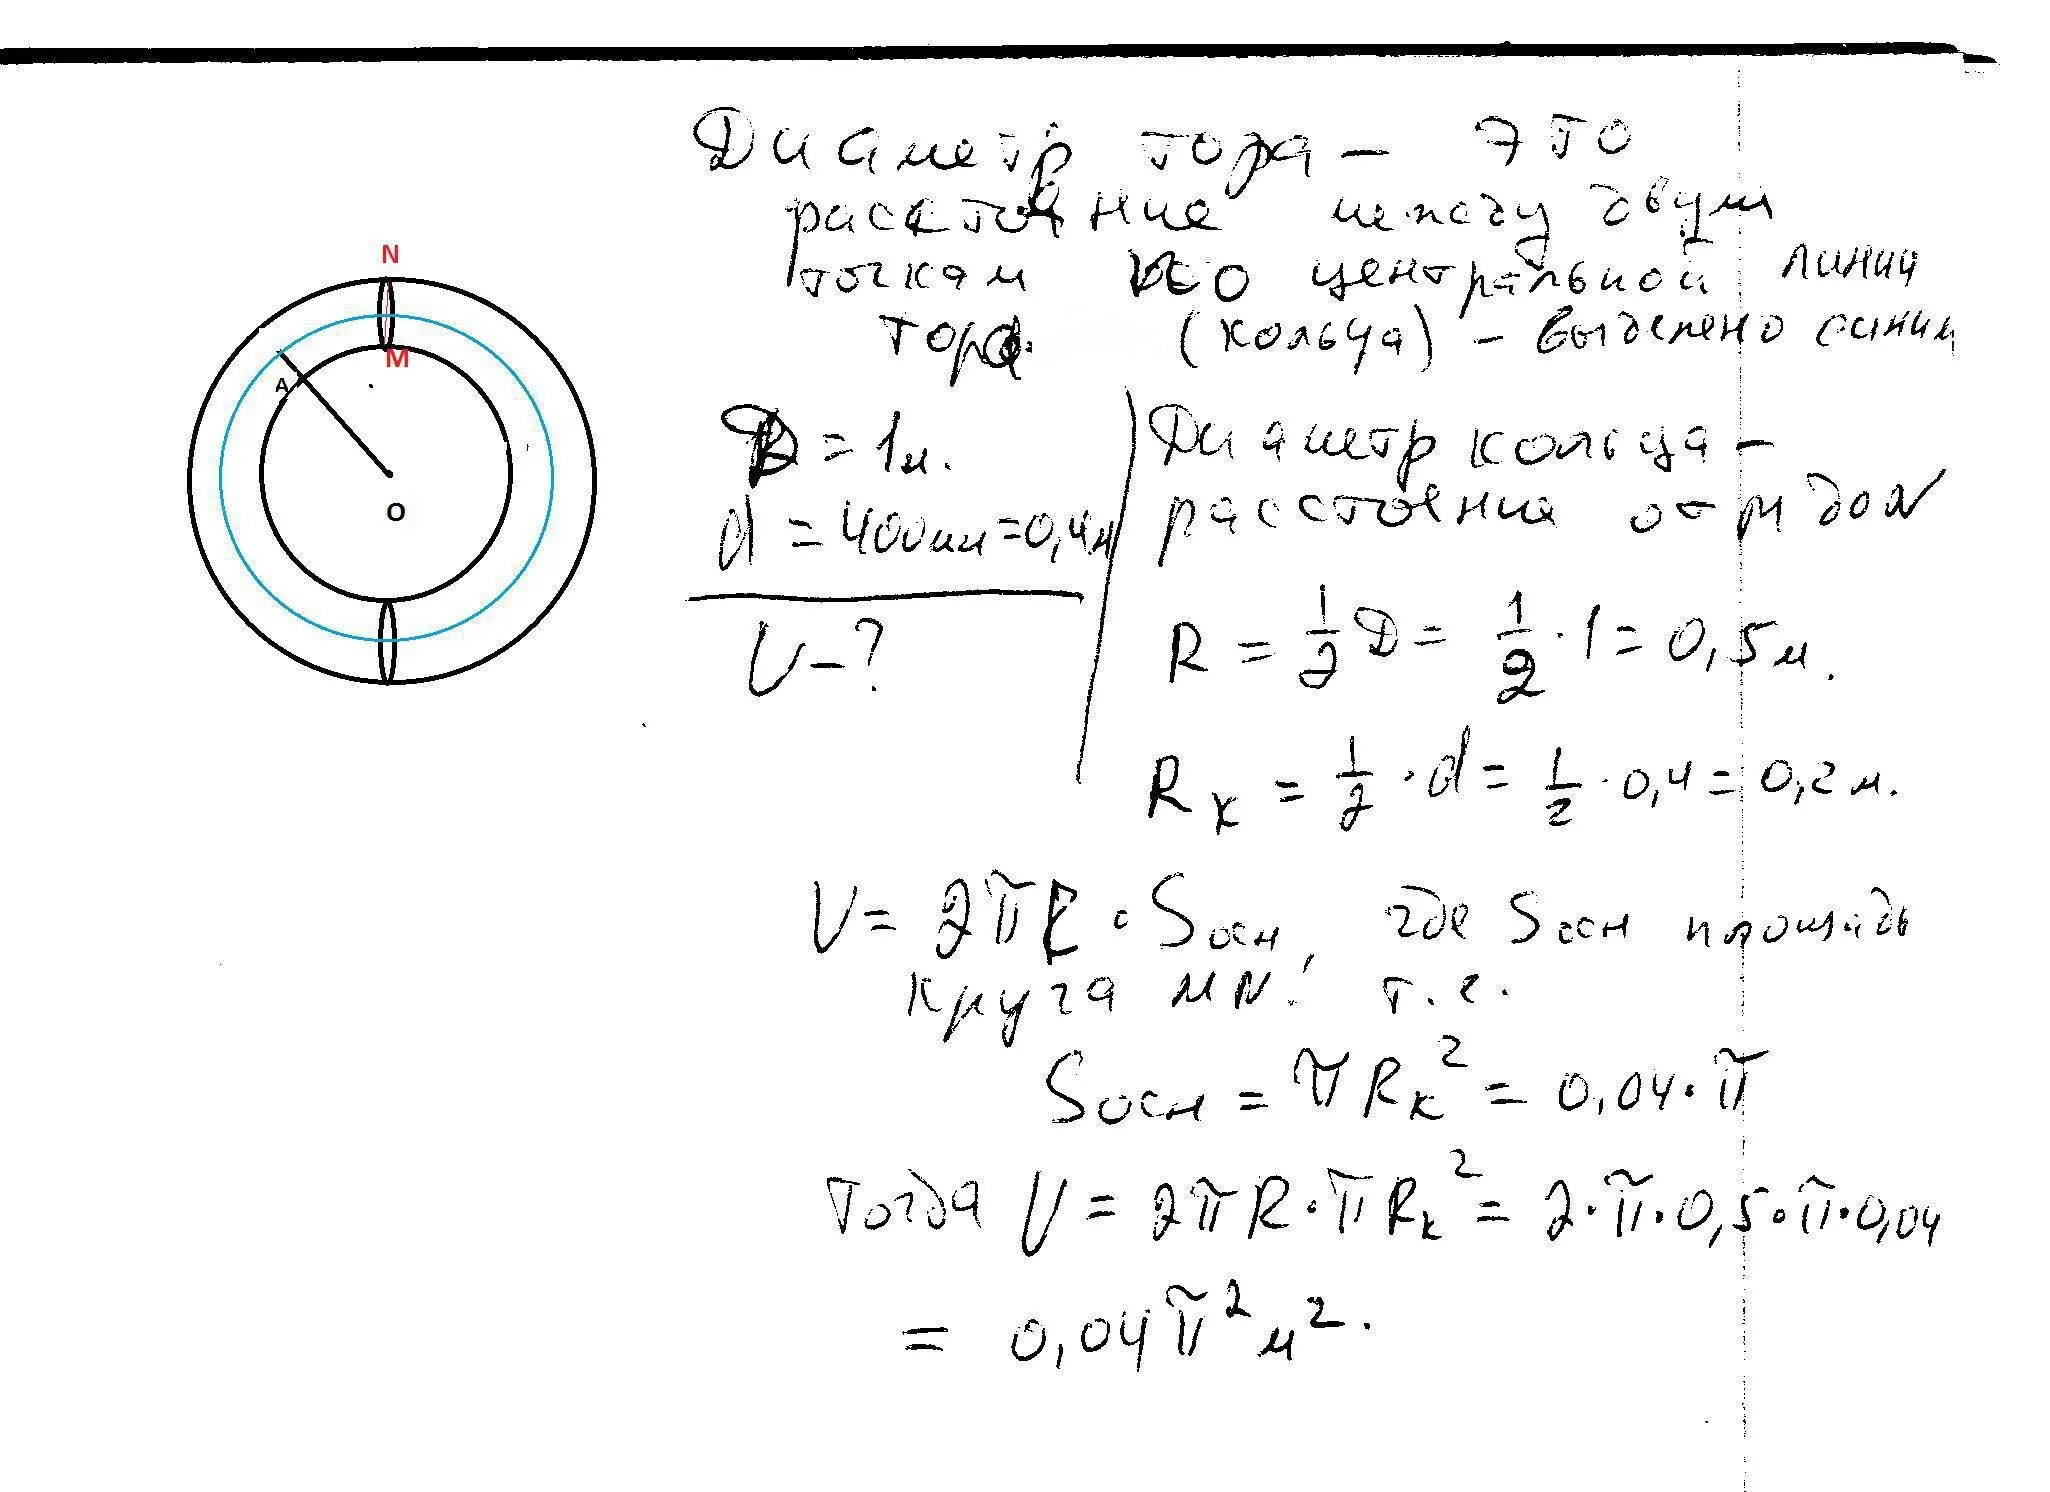 Диаметр тора – это
расстояние между двумя
точкам по центральной линии
тора. (кольца) – выделено синим
N
M
A
O
D = 1м.
d = 400мм = 0,4м
V – ?
Диаметр кольца –
расстояние от M до N
R = 1/2 D = 1/2 · 1 = 0,5 м.
Rк = 1/2 · d = 1/2 · 0,4 = 0,2 м.
V = 2πR · Sосн, где Sосн площадь
круга MN! т.е.
Sосн = πRк² = 0,04·π
тогда V = 2πR·πRк² = 2·π·0,5·π·0,04
= 0,04π² м².